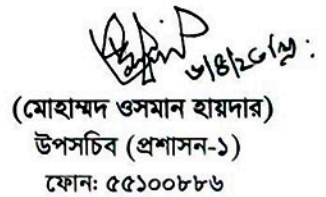 (মোহাম্মদ ওসমান হায়দার)
উপসচিব (প্রশাসন-১)
ফোন: ৫৫১০০৮৮৬